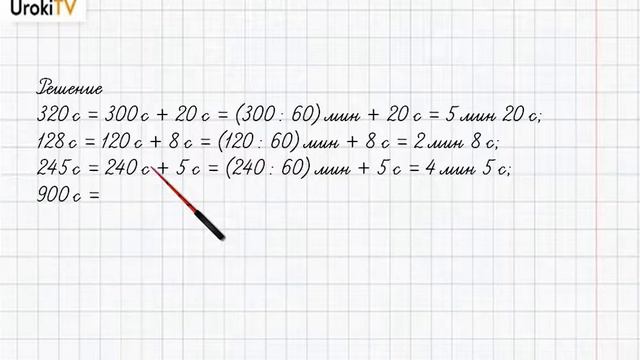 UrokiTV
Решение
320 с = 300 с + 20 с = (300 : 60) мин + 20 с = 5 мин 20 с;
128 с = 120 с + 8 с = (120 : 60) мин + 8 с = 2 мин 8 с;
245 с = 240 с + 5 с = (240 : 60) мин + 5 с = 4 мин 5 с;
900 с =